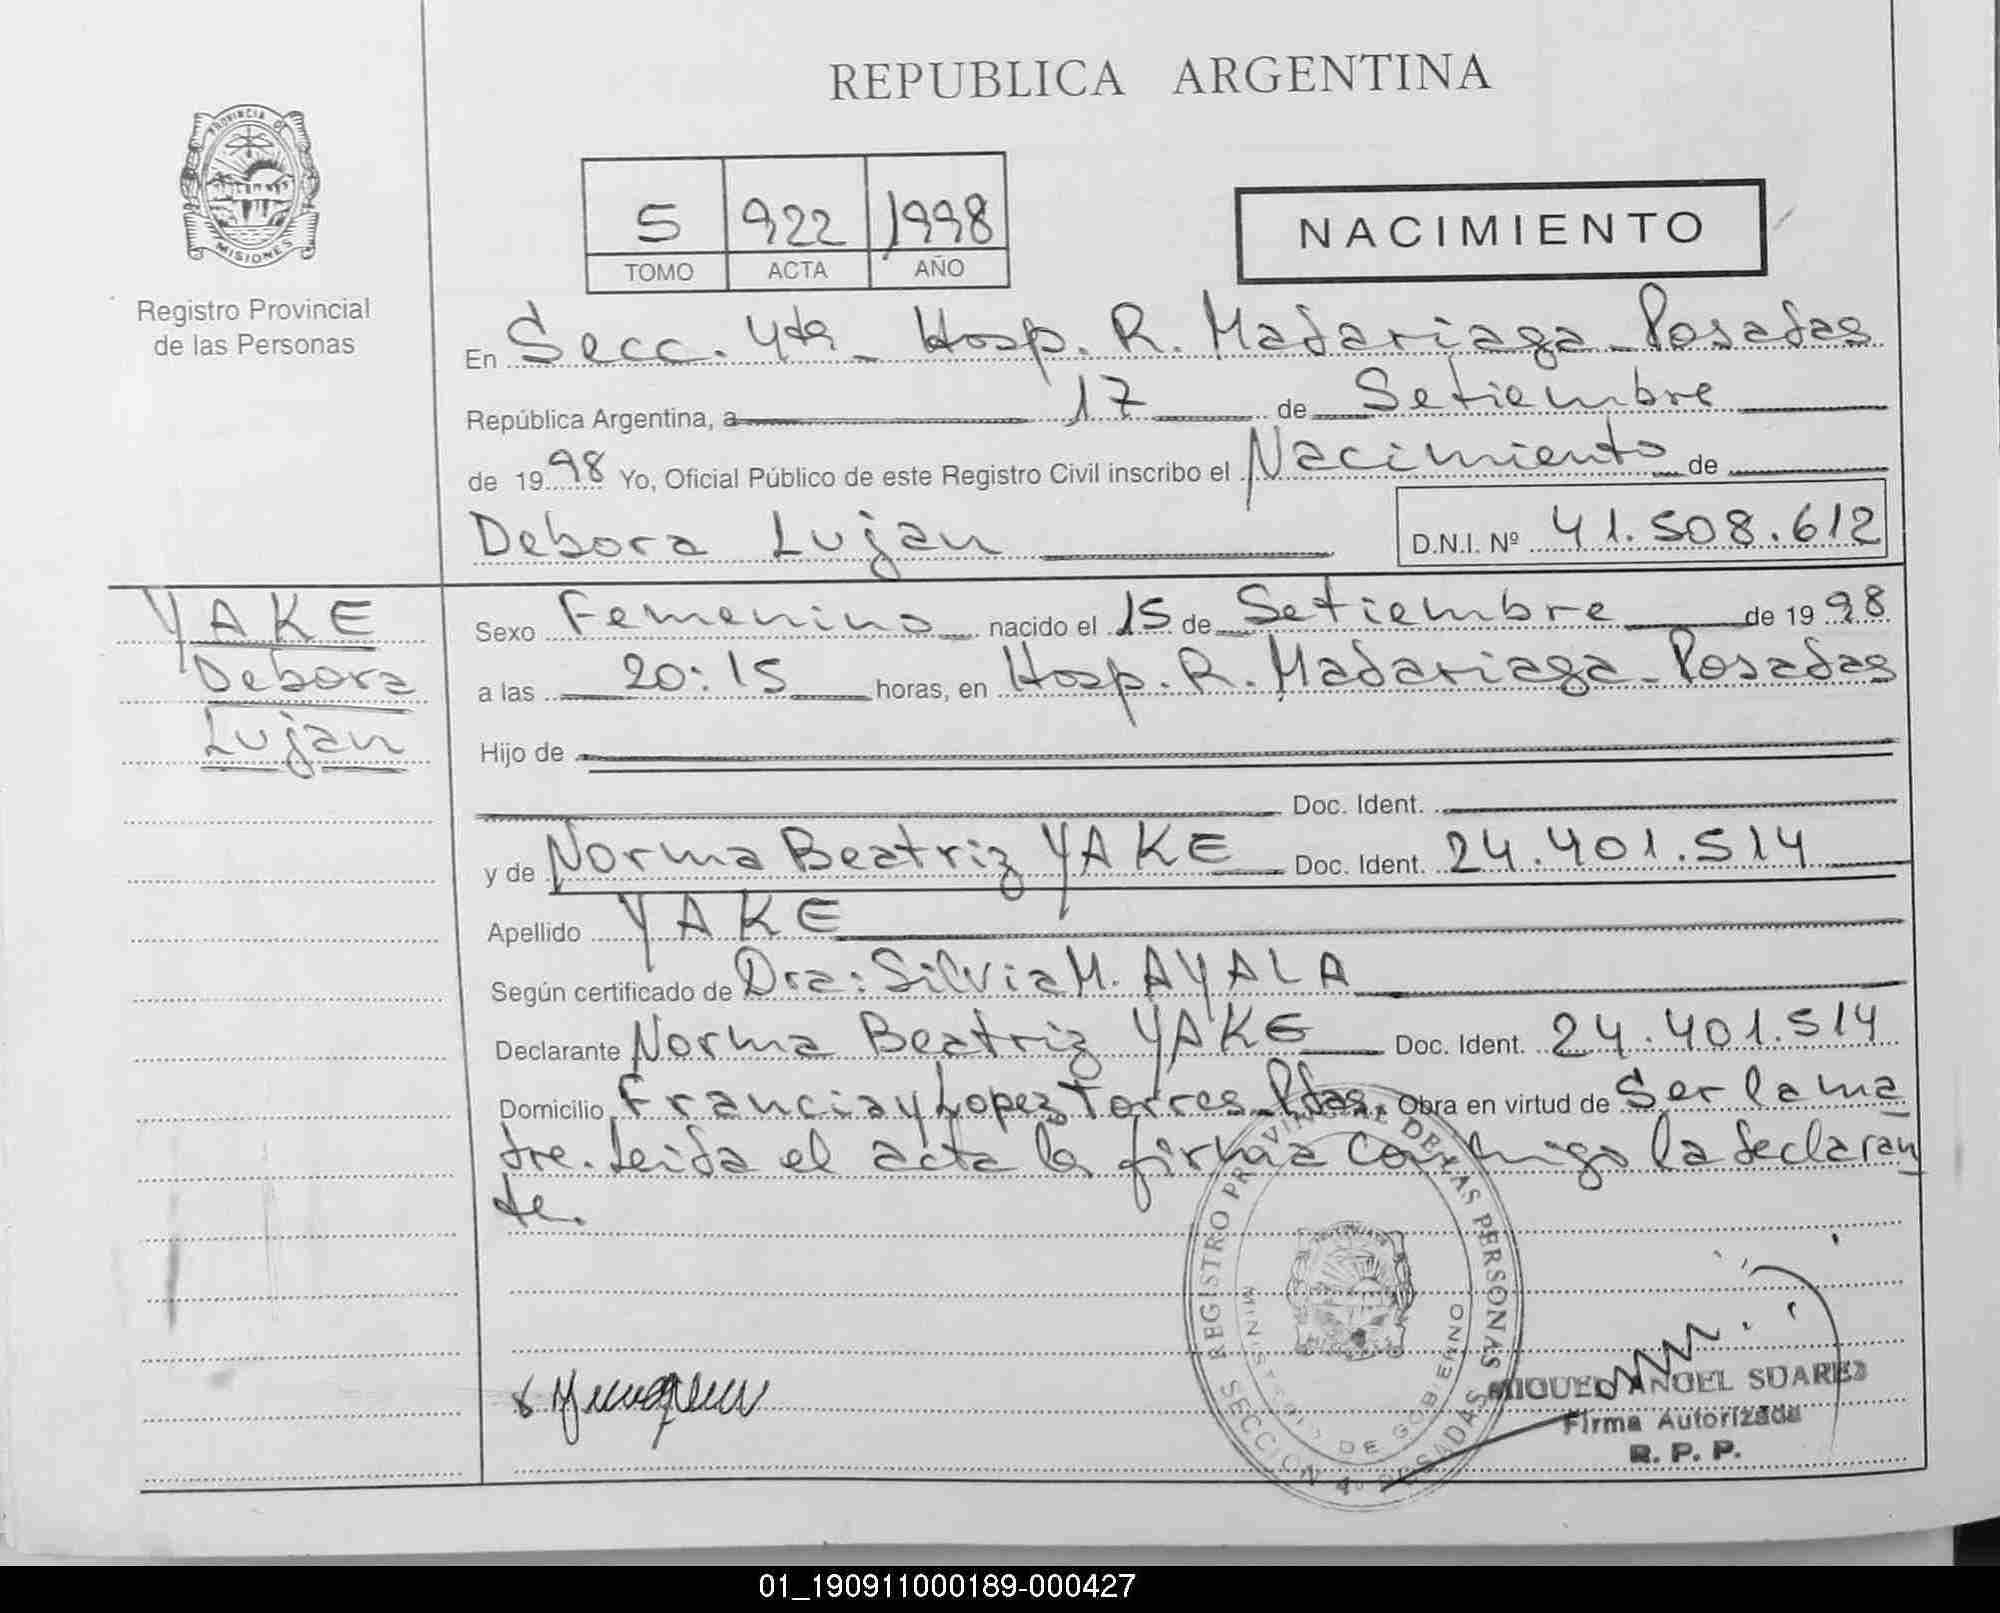 REPUBLICA ARGENTINA
PROVINCIA DE
MISIONES
Registro Provincial
de las Personas
5 922 1998
TOMO ACTA AÑO
NACIMIENTO
En Secc. 4ta_ Hosp. R. Madariaga_Posadas
República Argentina, a 17 de Setiembre
de 1998 Yo, Oficial Público de este Registro Civil inscribo el Nacimiento de
Debora Lujan D.N.I. Nº 41.508.612
YAKE
Debora
Lujan
Sexo Femenino nacido el 15 de Setiembre de 1998
a las 20:15 horas, en Hosp. R. Madariaga_Posadas
Hijo de
Doc. Ident.
y de Norma Beatriz YAKE Doc. Ident. 24.401.514
Apellido YAKE
Según certificado de Dra: Silvia M. AYALA
Declarante Norma Beatriz YAKE Doc. Ident. 24.401.514
Domicilio Francia y Lopez Torres_Pdas. Obra en virtud de Ser la ma
dre. Leida el acta la firma conmigo la declaran
te.
REGISTRO PROVINCIAL DE LAS PERSONAS
MINISTERIO DE GOBIERNO
SECCION 4º POSADAS
MIGUEL ANGEL SUAREZ
Firma Autorizada
R. P. P.
01_190911000189-000427